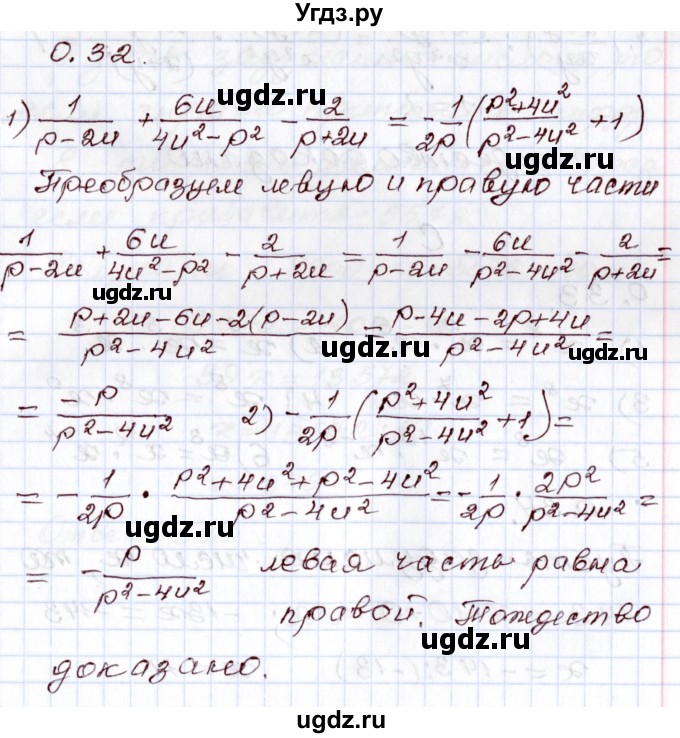 Угдз.ру
0.32.
1) 1/(p-2u) + 6u/(4u²-p²) - 2/(p+2u) = -1/2p ((p²+4u²)/(p²-4u²) + 1)
ugdz.ru
ugdz.ru
Преобразуем левую и правую части
1/(p-2u) + 6u/(4u²-p²) - 2/(p+2u) = 1/(p-2u) - 6u/(p²-4u²) - 2/(p+2u) =
ugdz.ru
= (p+2u-6u-2(p-2u))/(p²-4u²) = (p-4u-2p+4u)/(p²-4u²) =
ugdz.ru
ugdz.ru
= -p/(p²-4u²) 2) -1/2p ((p²+4u²)/(p²-4u²) + 1) =
ugdz.ru
ugdz.ru
= -1/2p · (p²+4u²+p²-4u²)/(p²-4u²) = -1/2p · 2p²/(p²-4u²) =
ugdz.ru
ugdz.ru
= -p/(p²-4u²) левая часть равна
правой. Тождество
ugdz.ru
доказано.
ugdz.ru
ugdz.ru